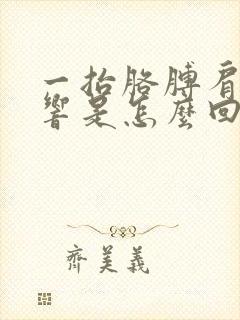 一抬胳膊肩
響是怎麼回
齊美義